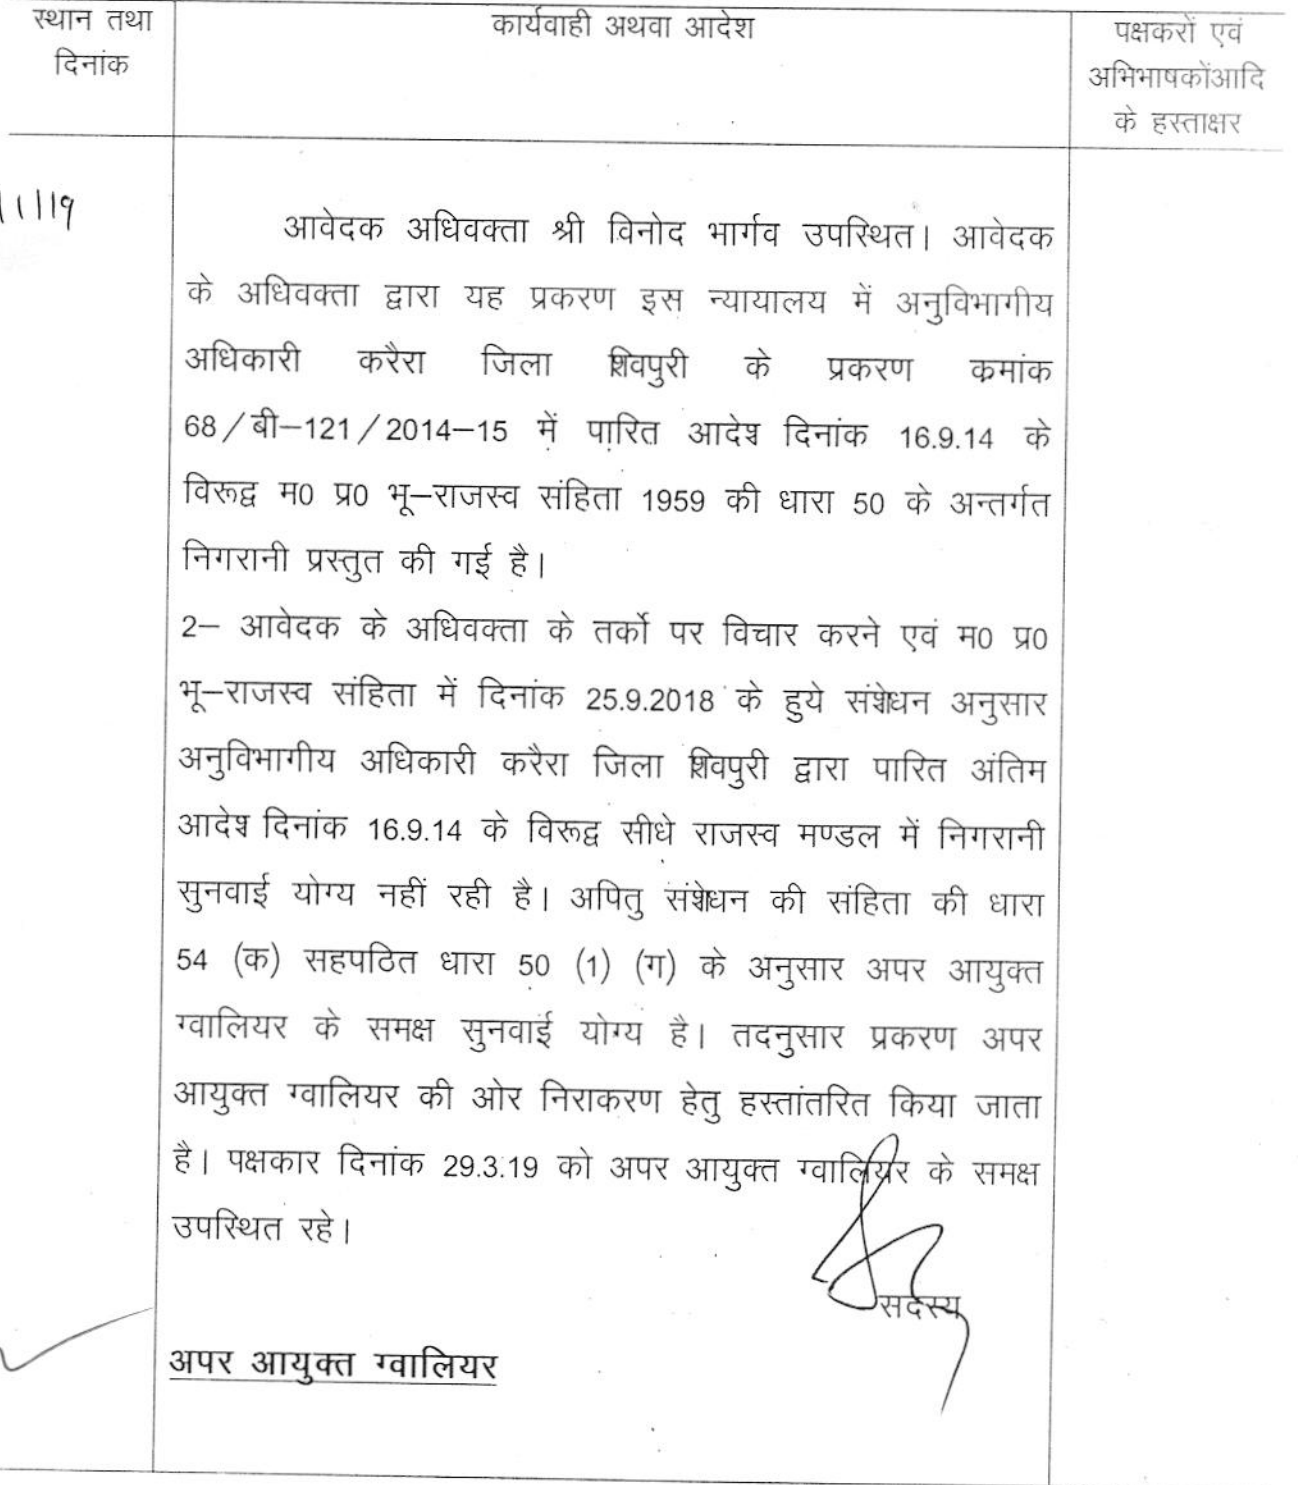 स्थान तथा
दिनांक
कार्यवाही अथवा आदेश
पक्षकरों एवं
अभिभाषकोंआदि
के हस्ताक्षर
1/19
आवेदक अधिवक्ता श्री विनोद भार्गव उपस्थित। आवेदक
के अधिवक्ता द्वारा यह प्रकरण इस न्यायालय में अनुविभागीय
अधिकारी करैरा जिला शिवपुरी के प्रकरण कमांक
68/बी–121/2014–15 में पारित आदेश दिनांक 16.9.14 के
विरूद्व म0 प्र0 भू–राजस्व संहिता 1959 की धारा 50 के अन्तर्गत
निगरानी प्रस्तुत की गई है।
2– आवेदक के अधिवक्ता के तर्को पर विचार करने एवं म0 प्र0
भू–राजस्व संहिता में दिनांक 25.9.2018 के हुये संशेधन अनुसार
अनुविभागीय अधिकारी करैरा जिला शिवपुरी द्वारा पारित अंतिम
आदेश दिनांक 16.9.14 के विरूद्व सीधे राजस्व मण्डल में निगरानी
सुनवाई योग्य नहीं रही है। अपितु संशेधन की संहिता की धारा
54 (क) सहपठित धारा 50 (1) (ग) के अनुसार अपर आयुक्त
ग्वालियर के समक्ष सुनवाई योग्य है। तदनुसार प्रकरण अपर
आयुक्त ग्वालियर की ओर निराकरण हेतु हस्तांतरित किया जाता
है। पक्षकार दिनांक 29.3.19 को अपर आयुक्त ग्वालियर के समक्ष
उपस्थित रहे।
सदस्य
अपर आयुक्त ग्वालियर